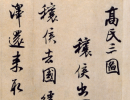 高氏三圖
穰侯出
穰侯去國經
澤遂來取